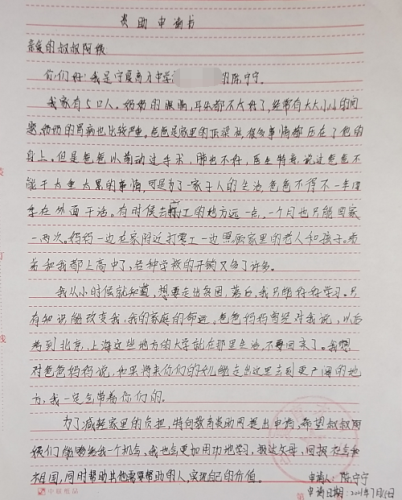 资助申请书
亲爱的叔叔阿姨
你们好!我是宁夏育才中学 的陈宁宁
我家有5口人。奶奶的眼睛,耳朵都不太好了,经常有大大小小的问
题,妈妈的胃病也比较严重,爸爸是家里的顶梁柱,很多事情都压在了他的
身上。但是爸爸以前动过手术,肺也不好,医生特意说过爸爸不
能干太重太累的事情,可是为了一家子人的生活,爸爸不得不一年四
季在外面干活。有时候去打工的地方远一点,一个月也只能回家
一两次。妈妈一边在家附近打零工一边照顾家里的老人和孩子。
和我都上高中了,各种学校的开销又多了许多。
我从小时候就知道,想要走出贫困,落后,我只能好好学习。只
有知识能改变我,我的家庭的命运,爸爸妈妈曾经对我说,以后
考到北京、上海这些地方的大学就在那里生活,不要回来了。我想
对爸爸妈妈说,如果将来你们的女儿能走出这里去到更广阔的地
方,我一定会带着你们的。
为了减轻家里的负担,特向教育资助网提出申请,希望叔叔阿
姨们能够给我一个机会,我也会更加用功地学习,报达父母,回报社会和
祖国,同时帮助其他需要帮助的人,实现自己的价值。
申请人:陈宁宁
申请日期: